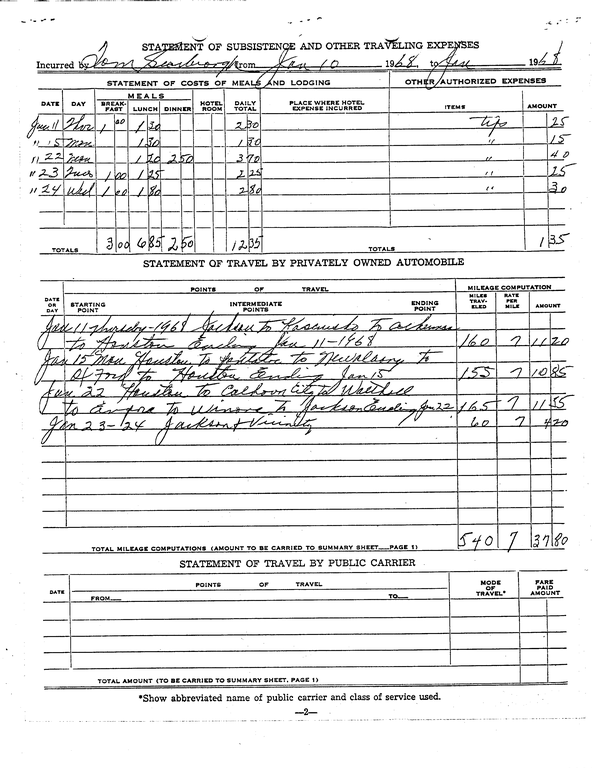 STATEMENT OF SUBSISTENCE AND OTHER TRAVELING EXPENSES
Incurred by Tom Scarbrough from Jan 10 1968 to Jan 1968
STATEMENT OF COSTS OF MEALS AND LODGING OTHER AUTHORIZED EXPENSES
MEALS
DATE DAY BREAK-FAST LUNCH DINNER HOTEL ROOM DAILY TOTAL PLACE WHERE HOTEL EXPENSE INCURRED ITEMS AMOUNT
Jan 11 Thur 1 00 1 30 2 30 tips 25
" 15 Mon 1 30 1 30 " 15
" 22 Mon 1 20 2 50 3 70 " 40
" 23 Tues 1 00 1 25 2 25 " 25
" 24 Wed 1 00 1 80 2 80 " 30
TOTALS 3 00 6 85 2 50 12 35 TOTALS 1 35
STATEMENT OF TRAVEL BY PRIVATELY OWNED AUTOMOBILE
POINTS OF TRAVEL MILEAGE COMPUTATION
DATE OR DAY STARTING POINT INTERMEDIATE POINTS ENDING POINT MILES TRAV-ELED RATE PER MILE AMOUNT
Jan 11 Thursday-1968 Jackson to Kosciusko to Ackerman
to Houston Ending Jan 11-1968 160 7 11 20
Jan 15 Mon Houston to to to
to Houston Ending Jan 15 155 7 10 85
Jan 22 Houston to Calhoun City to
to to Winona to Jackson Ending Jan 22 165 7 11 55
Jan 23-24 Jackson & Vicinity 60 7 4 20
TOTAL MILEAGE COMPUTATIONS (AMOUNT TO BE CARRIED TO SUMMARY SHEET PAGE 1) 540 7 37 80
STATEMENT OF TRAVEL BY PUBLIC CARRIER
DATE POINTS OF TRAVEL MODE OF TRAVEL* FARE PAID AMOUNT
FROM TO
TOTAL AMOUNT (TO BE CARRIED TO SUMMARY SHEET, PAGE 1)
*Show abbreviated name of public carrier and class of service used.
—2—